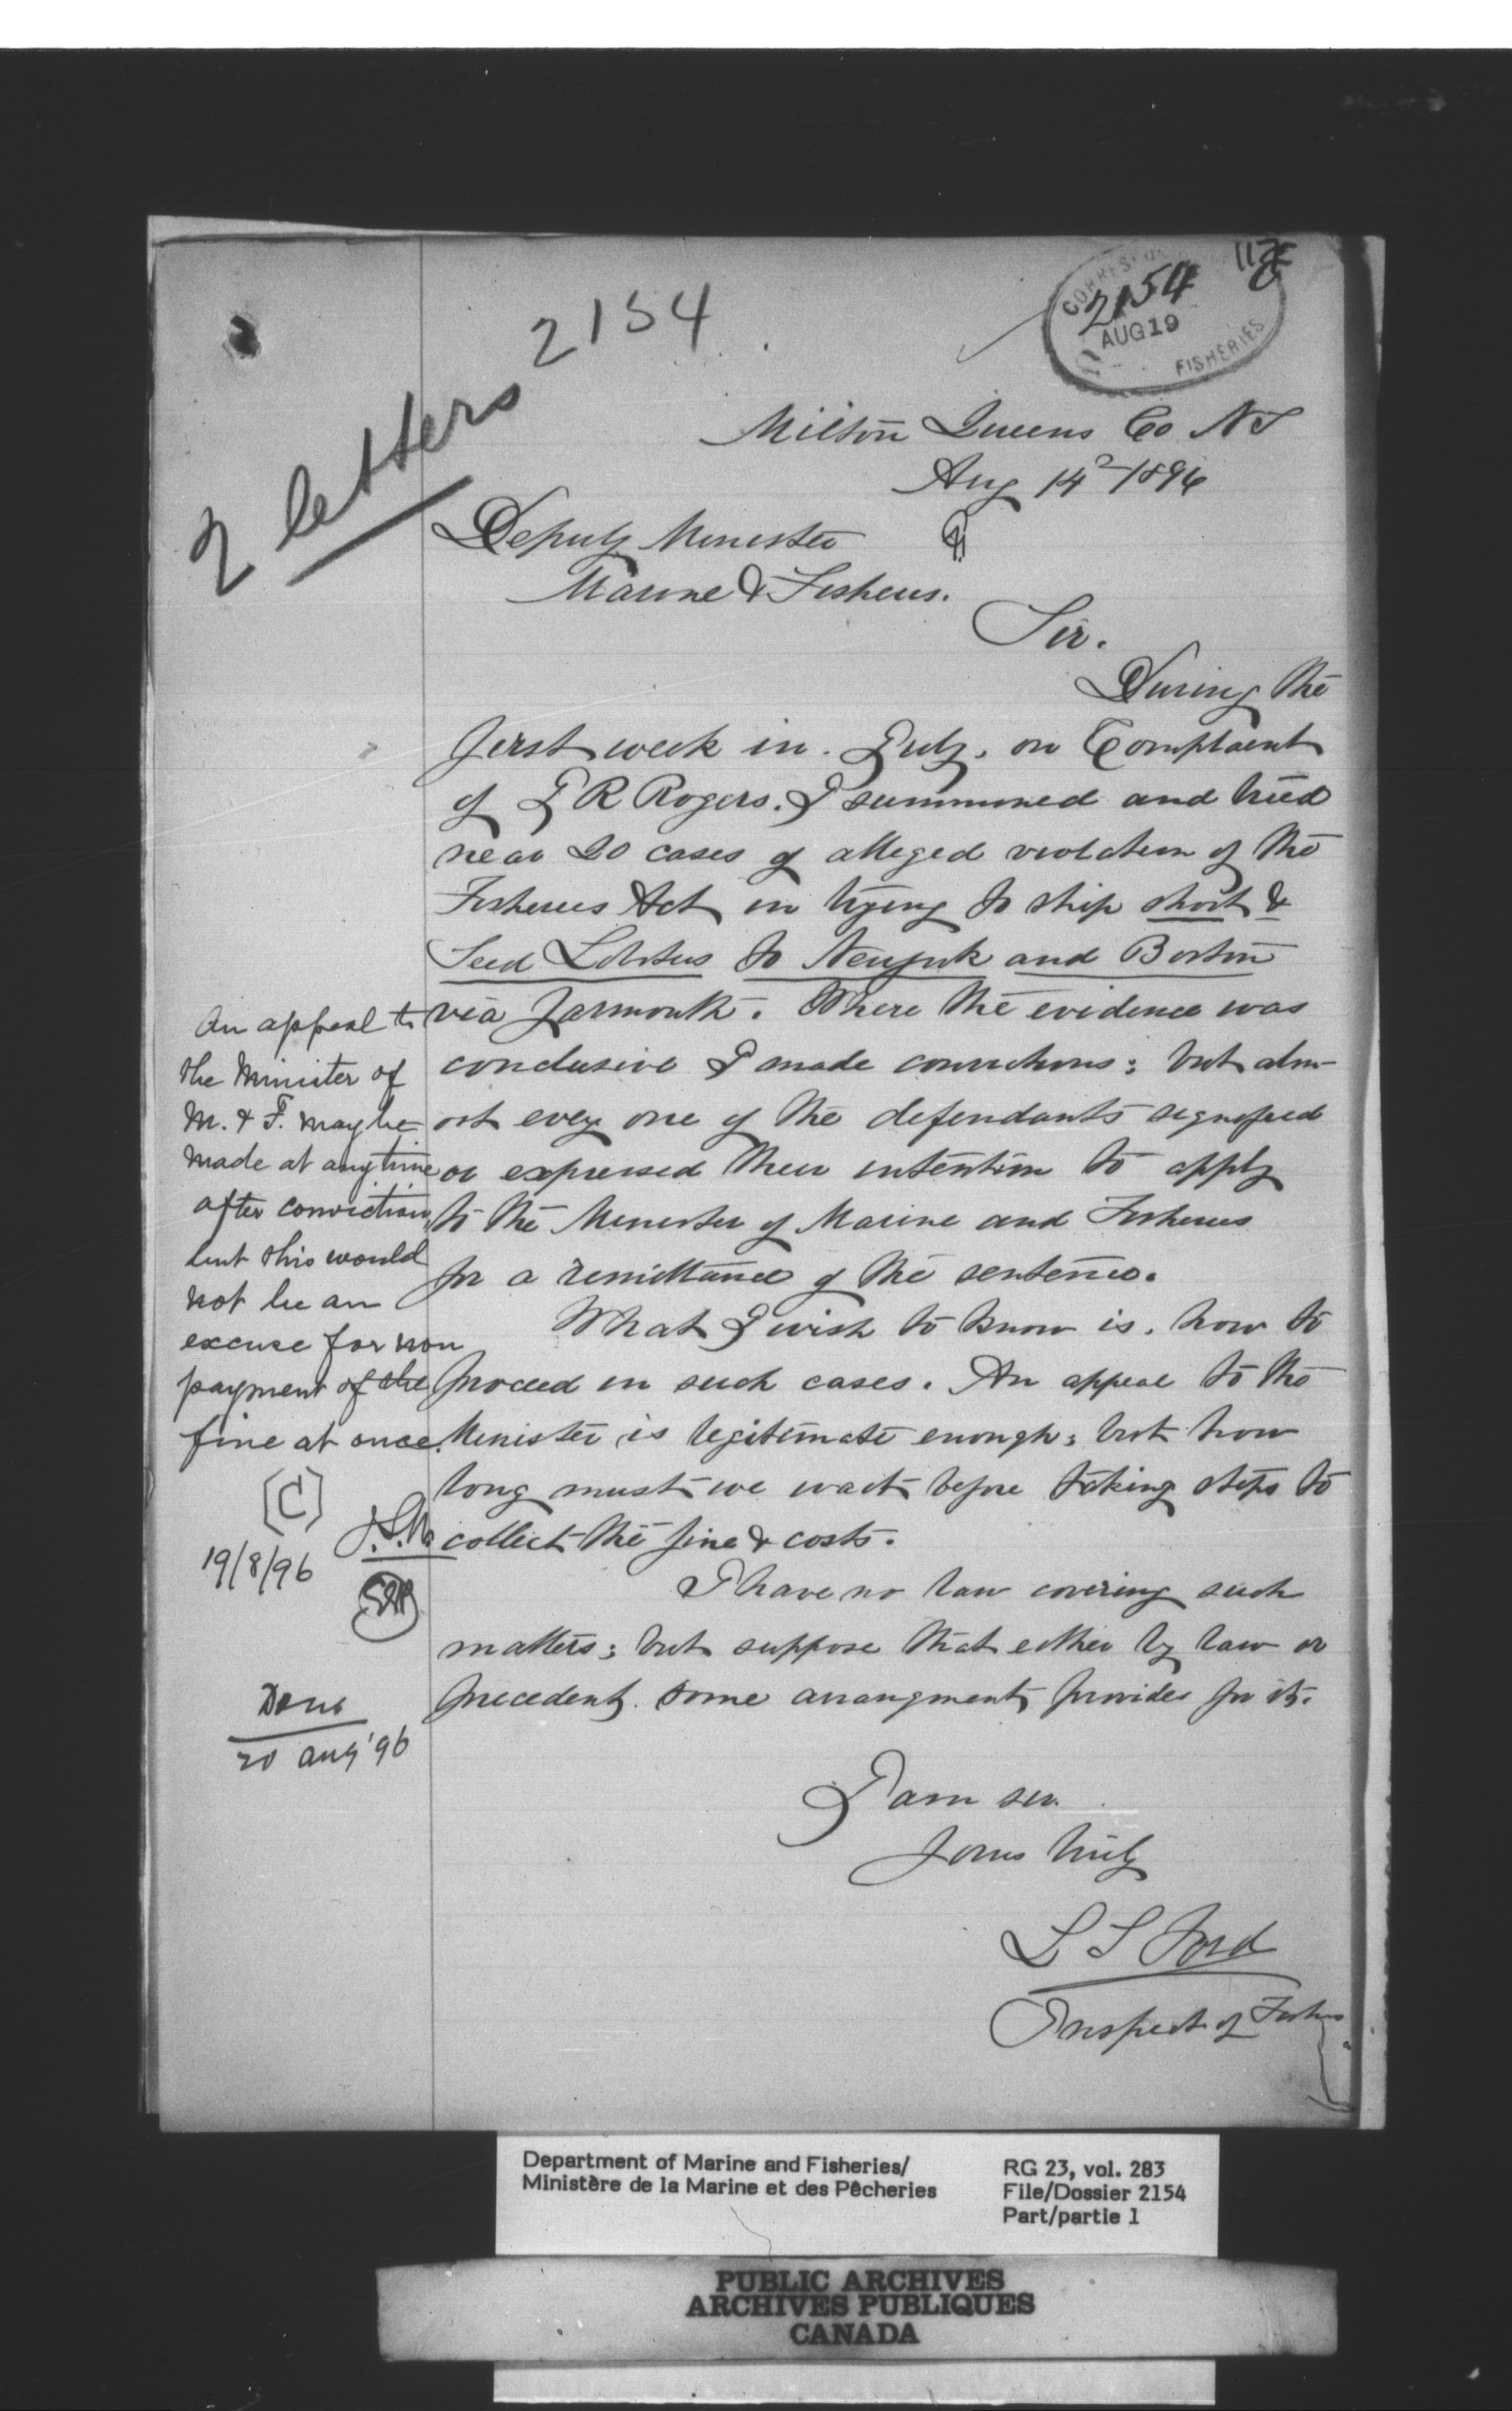 2154
2 letters
CORRES
2154
AUG 19
FISHERIES
Milton Queens Co N S
Aug 14 1896
Deputy Minister
Marine & Fisheries.
Sir.
During the
first week in July, on Complaint
of J R Rogers. I summoned and tried
near 20 cases of alleged violation of the
Fisheries Act in trying to ship short &
Seed Lobsters to Newyork and Boston
via Yarmouth. Where the evidence was
conclusive I made convictions; but alm-
ost every one of the defendants signified
or expressed their intention to apply
to the Minister of Marine and Fisheries
for a remittance of the sentence.
What I wish to know is, how to
proceed in such cases. An appeal to the
Minister is legitimate enough; but how
long must we wait before taking steps to
collect the fine & costs.
I have no law covering such
matters; but suppose that either by law or
precedent some arrangment provides for it.
I am sir
Yours truly
L S Ford
Inspect of Fisheries
An appeal to
the Minister of
M. & F. may be
made at any time
after conviction,
but this would
not be an
excuse for non
payment of the
fine at once.
[C]
19/8/96
Done
20 Aug '96
Department of Marine and Fisheries/
Ministère de la Marine et des Pêcheries
RG 23, vol. 283
File/Dossier 2154
Part/partie 1
PUBLIC ARCHIVES
ARCHIVES PUBLIQUES
CANADA